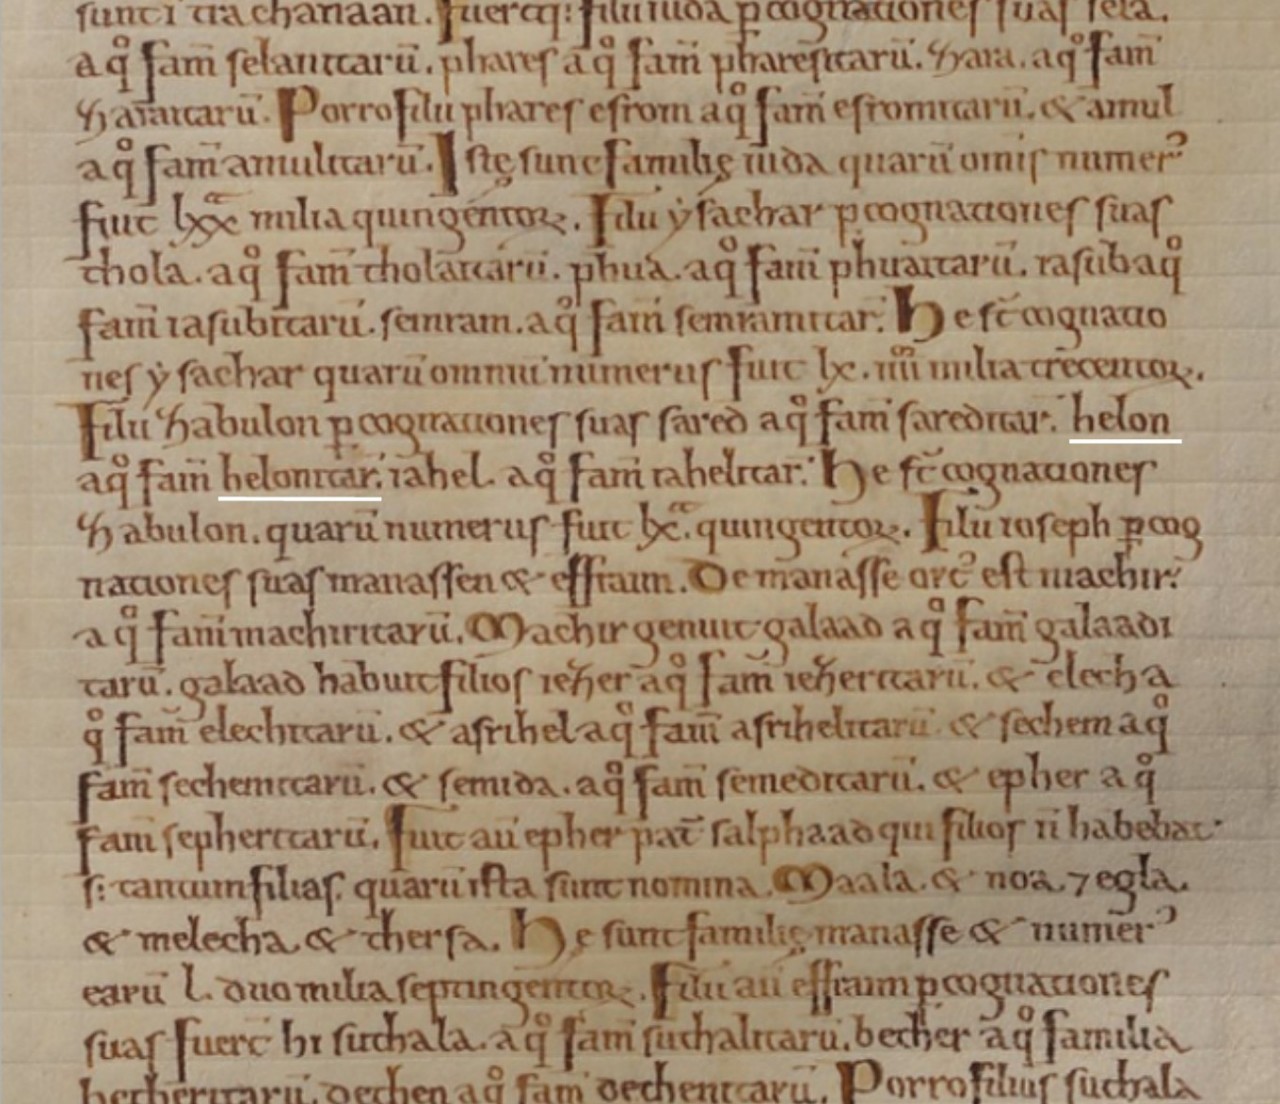 sunt i tra chanaan. fuerq;: filii iuda p cognationes suas sela.
a qͦ fam̄ selanitarū. phares a qͦ fam̄ pharesitarū. zara. a qͦ fam̄
zaraitarū. Porro filii phares esrom a qͦ fam̄ esromitarū. & amul
a qͦ fam̄ amulitarū. Istę sunt familię iuda quarū omīs numer᾽
fuit lxx milia quingentoꝝ. Filii ẏsachar ꝑ cognationes suas
thola. a qͦ fam̄ tholaitarū. phua. a qͦ fam̄ phuaitarū. iasub a qͦ
fam̄ iasubitarū. semram. a qͦ fam̄ semramitar. He st̄ cognatio
nes ẏsachar quarū omniū numerus fuit lx. iiii milia trecentoꝝ.
Filii zabulon ꝑ cognationes suas sared a qͦ fam̄ sareditar. helon
a qͦ fam̄ helonitar. iahel. a qͦ fam̄ iahelitar. He st̄ cognationes
zabulon. quarū numerus fuit lx. quingentoꝝ. Filii ioseph ꝑ cog
nationes suas manassen & effraim. De manasse ort᾽ est machir.
a qͦ fam̄ machiritarū. Machir genuit galaad a qͦ fam̄ galaadi
tarū. galaad habuit filios iezer a qͦ fam̄ iezeritarū. & elech a
qͦ fam̄ elechitarū. & asrihel a qͦ fam̄ asrihelitarū. & sechem a qͦ
fam̄ sechemitarū. & semida. a qͦ fam̄ semeditarū. & epher a qͦ
fam̄ sepheritarū. Fuit aū epher pat̄ salphaad qui filios n̄ habebat
s; tantum filias. quarū ista sunt nomina. Maala. & noa. ⁊ egla.
& melecha. & thersa. Hę sunt familię manasse & numer᾽
earū l. duo milia septingentoꝝ. Filii aū effraim ꝑ cognationes
suas fuer̄ hi suthala. a qͦ fam̄ suthalitarū. becher a qͦ familia
becheritarū. dechen a qͦ fam̄ dechenitarū. Porro filius suthala